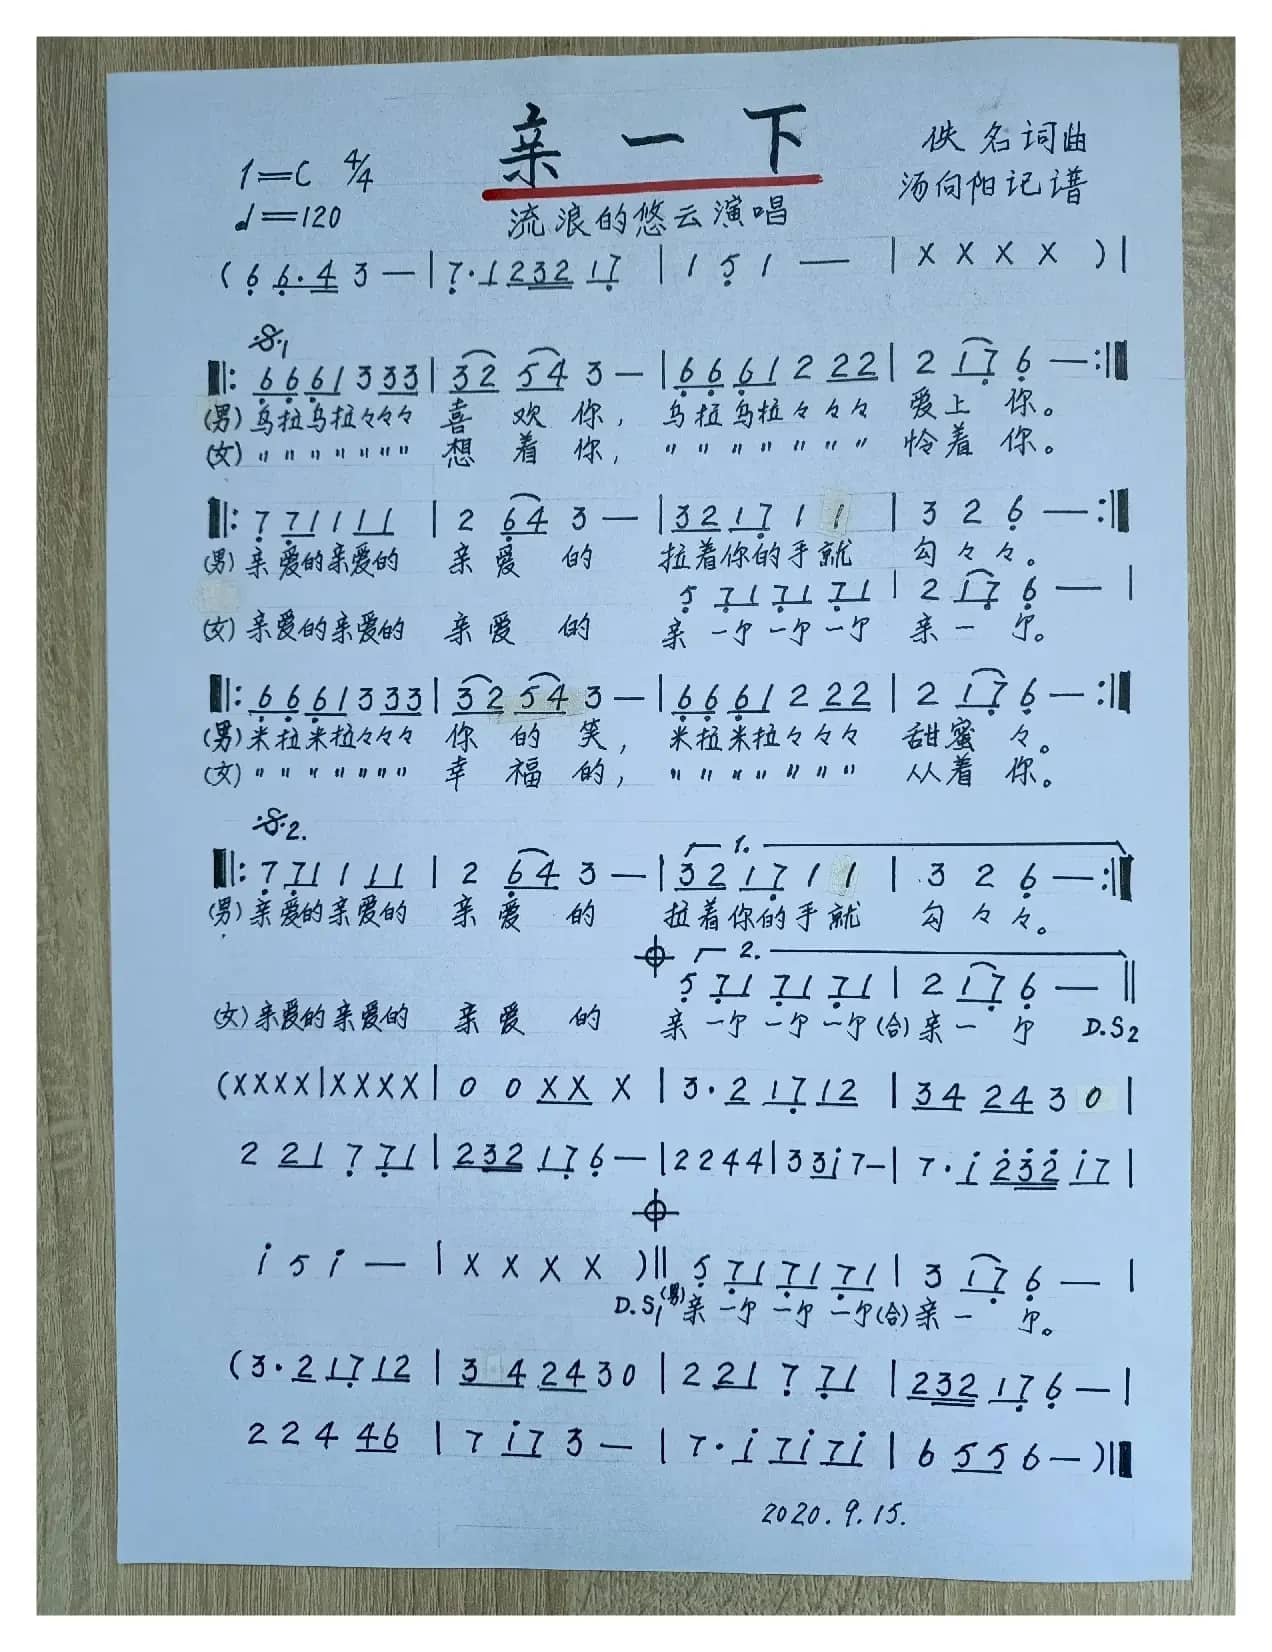 亲一下
1=C 4/4
佚名词曲
♩=120
流浪的悠云演唱
汤向阳记谱
( 6 6·4 3 — | 7·1 232 17 | 1 5 1 — | X X X X ) |
𝄋1
‖: 6 6 6 1 3 3 3 | 3 2 5 4 3 — | 6 6 6 1 2 2 2 | 2 1 7 6 — :‖
(男) 乌拉乌拉々々々 喜 欢 你, 乌拉乌拉々々々 爱上 你。
(女) 〃 〃 〃 〃 〃 〃 〃 想 着 你, 〃 〃 〃 〃 〃 〃 〃 怜着 你。
‖: 7 7 1 1 1 1 | 2 6 4 3 — | 3 2 1 7 1 1 | 3 2 6 — :‖
(男) 亲爱的亲爱的 亲 爱 的 拉着你的手就 勾々々。
5 7 1 7 1 7 1 | 2 1 7 6 — |
(女) 亲爱的亲爱的 亲 爱 的 亲一尔一尔一尔 亲一 尔。
‖: 6 6 6 1 3 3 3 | 3 2 5 4 3 — | 6 6 6 1 2 2 2 | 2 1 7 6 — :‖
(男) 米拉米拉々々々 你 的 笑, 米拉米拉々々々 甜蜜 々。
(女) 〃 〃 〃 〃 〃 〃 〃 幸 福 的, 〃 〃 〃 〃 〃 〃 〃 从着 你。
𝄋2.
1.
‖: 7 7 1 1 1 1 | 2 6 4 3 — | 3 2 1 7 1 1 | 3 2 6 — :‖
(男) 亲爱的亲爱的 亲 爱 的 拉着你的手就 勾々々。
𝄌 2.
5 7 1 7 1 7 1 | 2 1 7 6 — ‖
(女) 亲爱的亲爱的 亲 爱 的 亲一尔一尔一尔 (合) 亲一 尔 D.S2
(X X X X | X X X X | 0 0 X X X | 3·2 1 7 1 2 | 3 4 2 4 3 0 |
2 2 1 7 7 1 | 2 3 2 1 7 6 — | 2 2 4 4 | 3 3 i 7 — | 7·i 2̇ 3̇ 2̇ i 7 |
𝄌
i 5 i — | X X X X ) ‖ 5 7 1 7 1 7 1 | 3 1 7 6 — |
D.S1 (男) 亲一尔一尔一尔 (合) 亲一 尔。
( 3·2 1 7 1 2 | 3 4 2 4 3 0 | 2 2 1 7 7 1 | 2 3 2 1 7 6 — |
2 2 4 4 6 | 7 i 7 3 — | 7·i 7 i 7 i | 6 5 5 6 — ) ‖
2020.9.15.